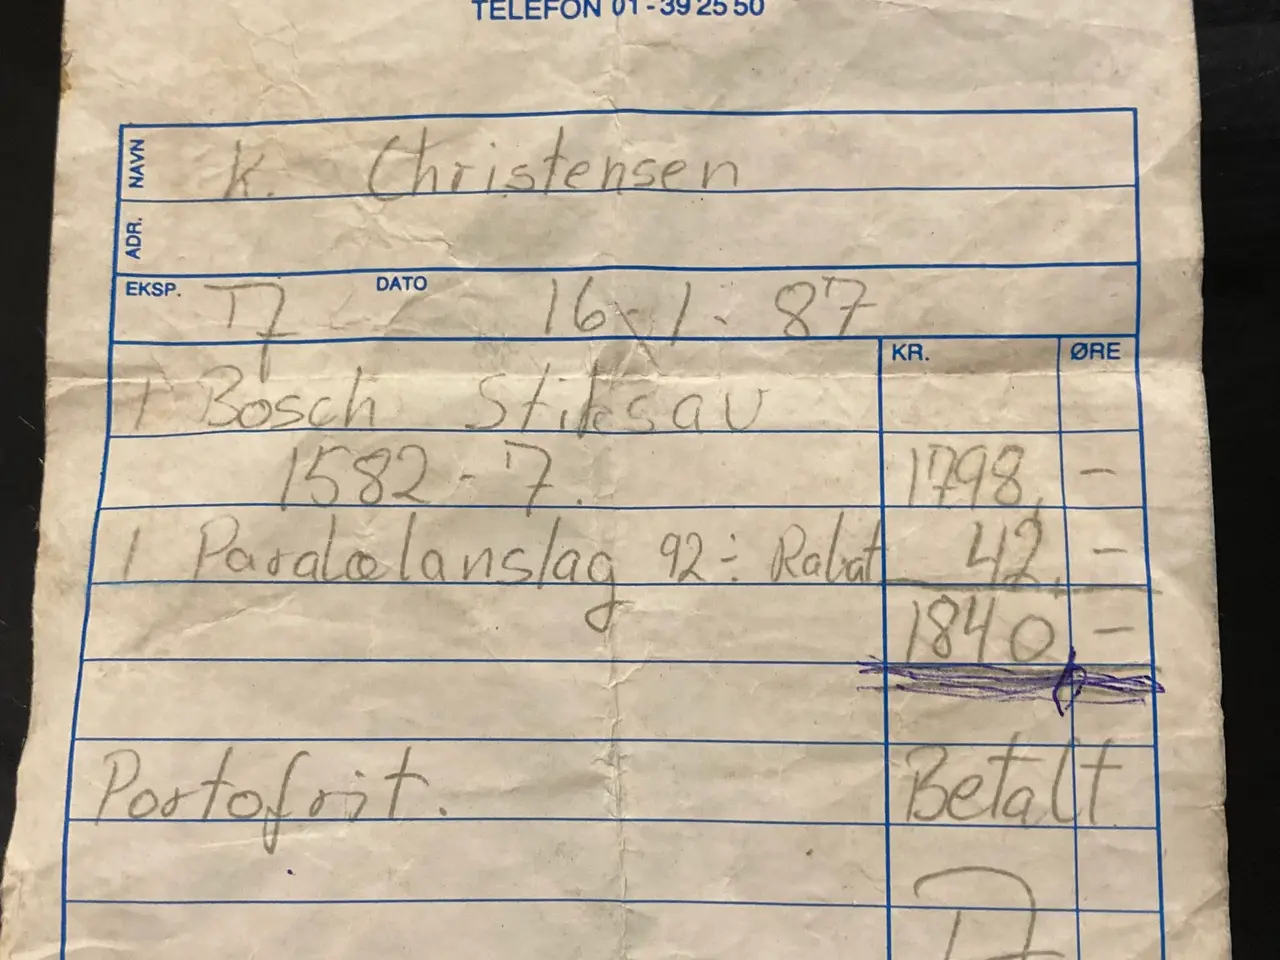 TELEFON 01-39 25 50
NAVN K. Christensen
ADR.
EKSP. DATO 16-1-87
KR. ØRE
1 Bosch Stiksav
1582-7. 1798,-
1 Paralelanslag 92÷ Rabat 42,-
1840 -
Portofrit. Betalt